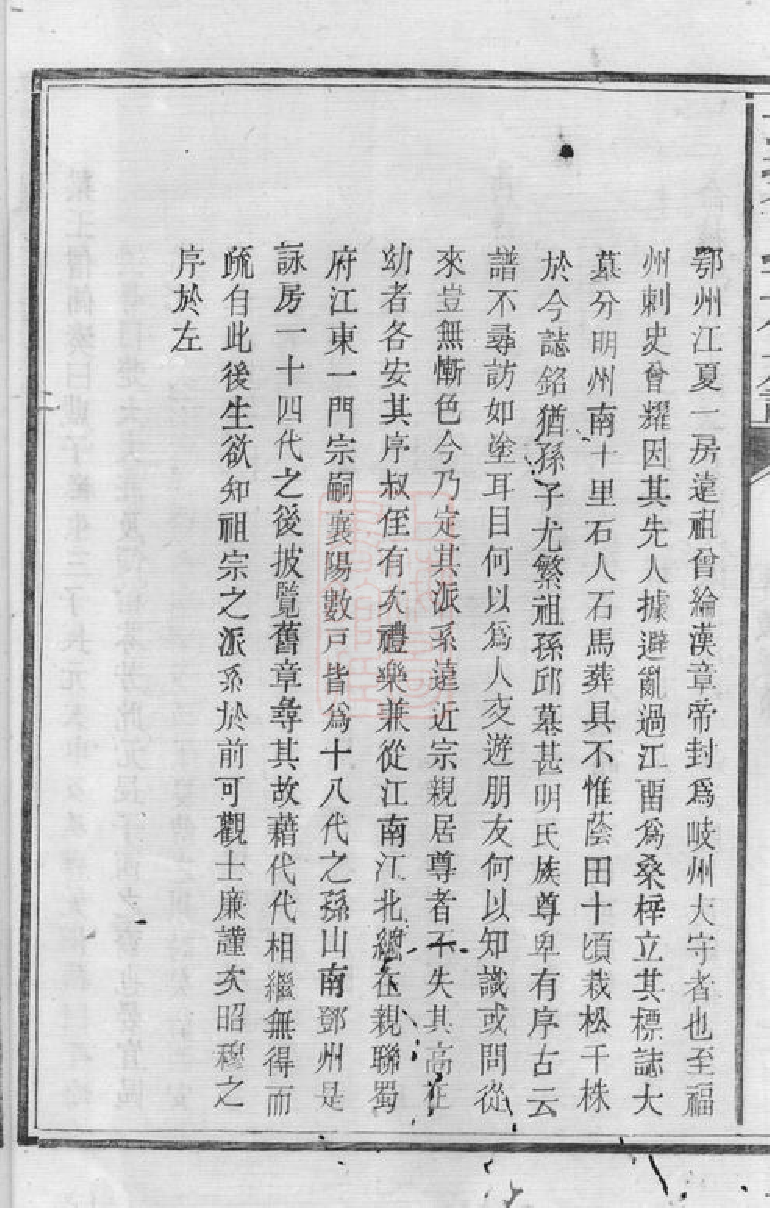 鄂州江夏一房遠祖曾綸漢章帝封爲岐州大守者也至福
州刺史曾耀因其先人據避亂過江畱爲桑梓立其標誌大
墓分明州南十里石人石馬葬具不惟蔭田十頃栽松千株
於今誌銘猶孫子尤繁祖孫邱墓甚明氏族尊卑有序古云
譜不尋訪如塗耳目何以爲人交遊朋友何以知識或問從
來豈無慚色今乃定其派系遠近宗親居尊者不失其高在
幼者各安其序叔侄有次禮樂兼從江南江北總在親聯蜀
府江東一門宗嗣襄陽數戸皆爲十八代之孫山南鄧州是
詠房一十四代之後披覽舊章尋其故藉代代相繼無得而
疏自此後生欲知祖宗之派系於前可觀士廉謹次昭穆之
序於左
二